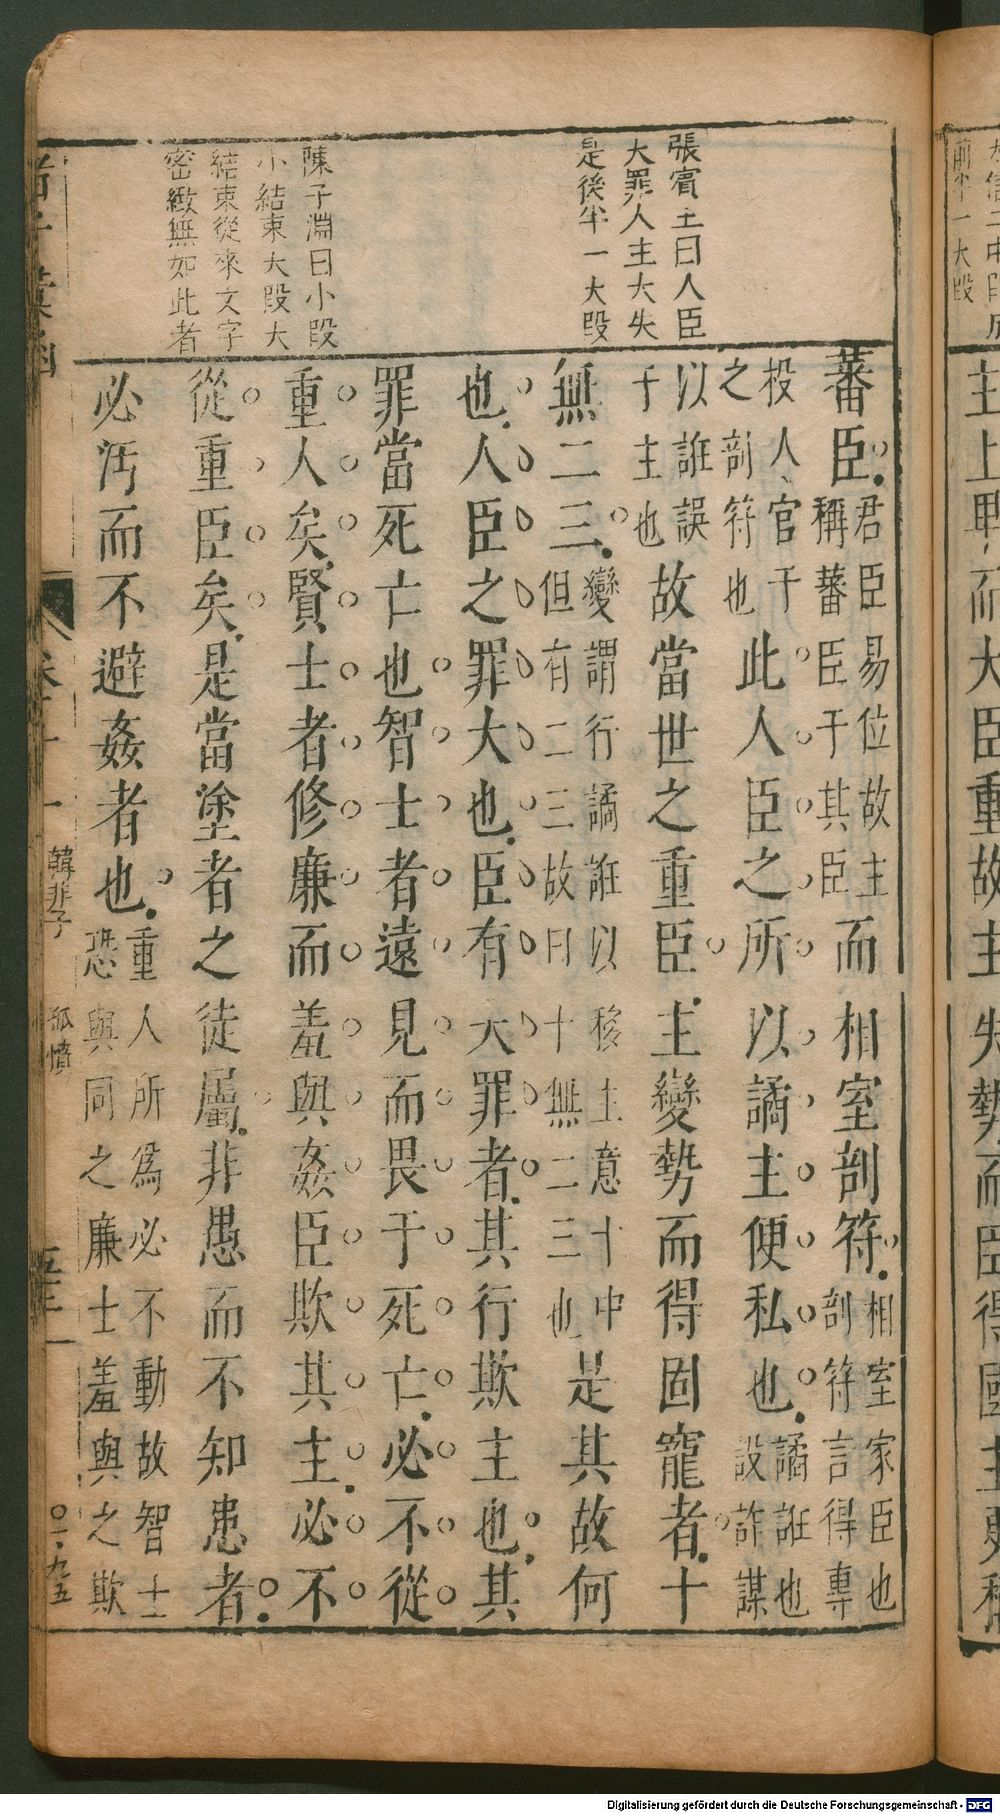 張賓王曰人臣
大罪人主大失
是後半一大段
陳子淵曰小段
小結束大段大
結束從來文字
密緻無如此者
蕃臣君臣易位故主稱蕃臣于其臣而相室剖符相室家臣也剖符言得專
投人官于之剖符也此人臣之所以譎主便私也譎誑也設詐謀
以誑誤于主也故當世之重臣主變勢而得固寵者十
無二三變謂行譎誑以移主意十中但有二三故曰十無二三也是其故何
也人臣之罪大也臣有大罪者其行欺主也其
罪當死亡也智士者遠見而畏于死亡必不從
重人矣賢士者修廉而羞與姦臣欺其主必不
從重臣矣是當塗者之徒屬非愚而不知患者
必汚而不避姦者也重人所為必不動故智士恐與同之廉士羞與之欺
卷二十一
韓非子
孤憤
〇一・九五
主上卑而大臣重故主
失勢而臣得國主更稱
前半一大段
Digitalisierung gefördert durch die Deutsche Forschungsgemeinschaft - DFG